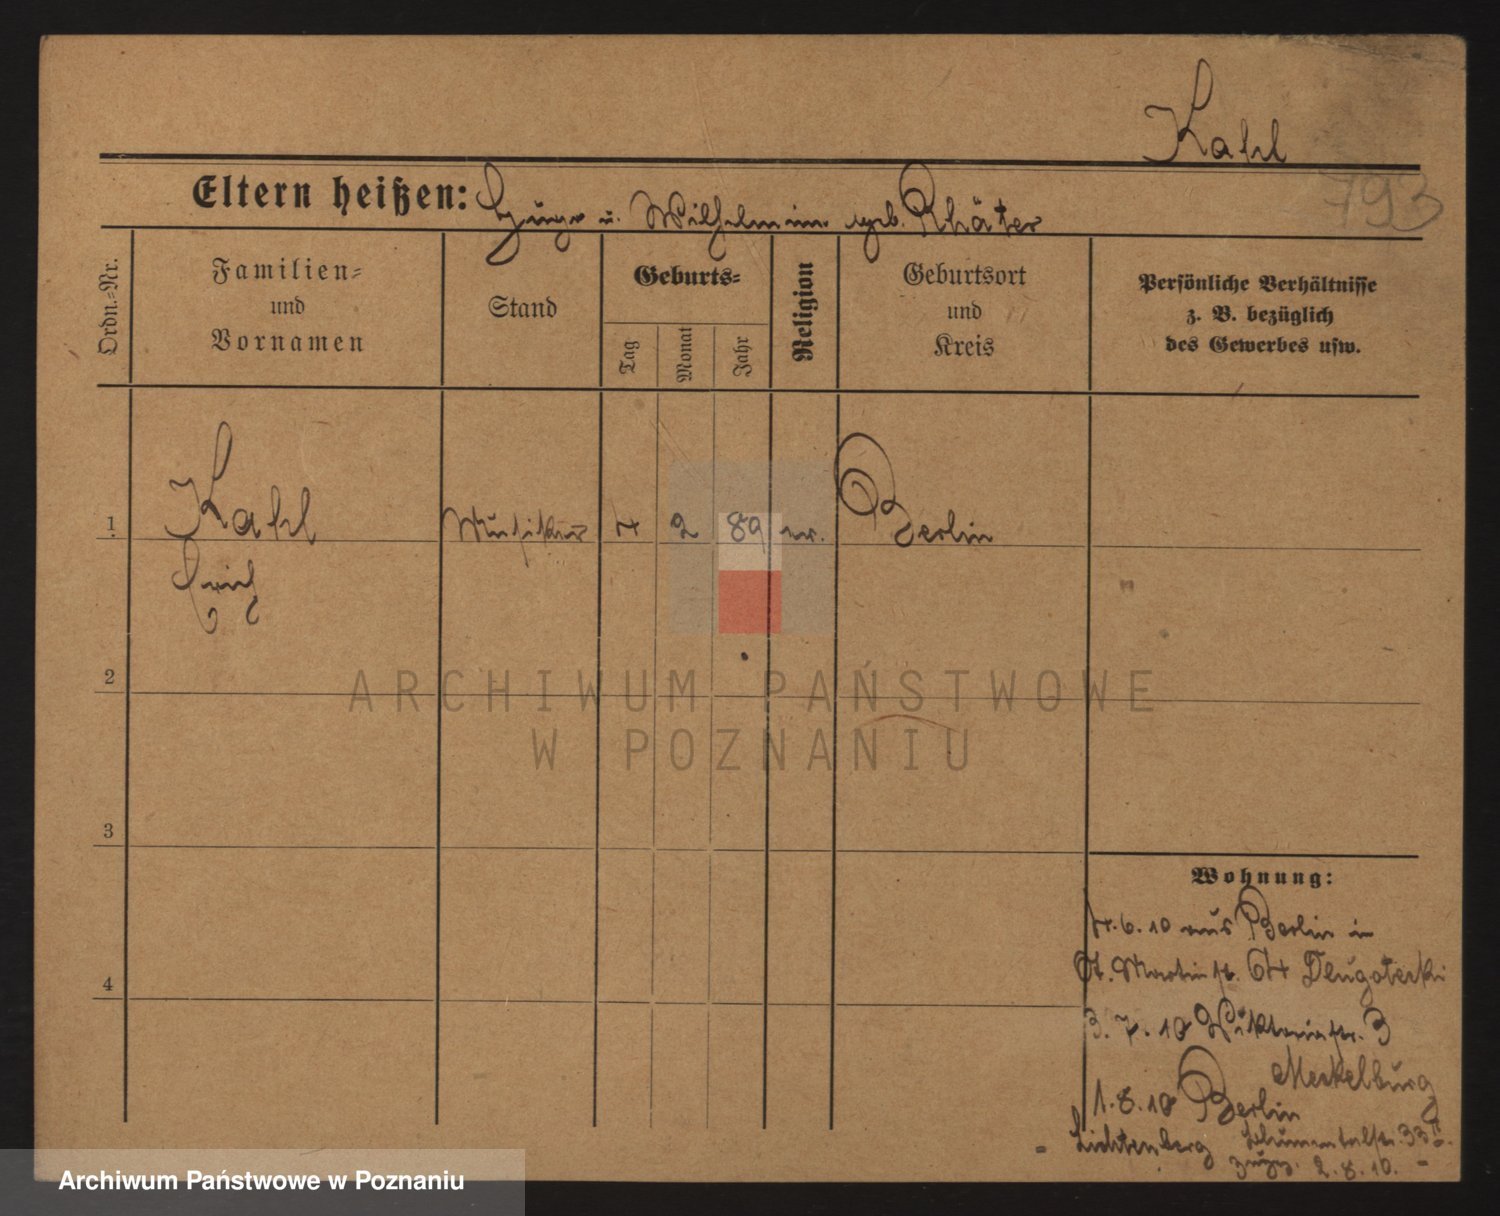 Kahl
793
Eltern heißen: Hugo u. Wilhelmine geb. Rhäter
Ordn.-Nr.
Familien-
und
Vornamen
Stand
Geburts-
Tag
Monat
Jahr
Religion
Geburtsort
und
Kreis
Persönliche Verhältnisse
z. B. bezüglich
des Gewerbes usw.
1
Kahl
Musiker
7
2
89
ev.
Berlin
Erich
2
ARCHIWUM PAŃSTWOWE
W POZNANIU
3
4
Wohnung:
4.6.10 aus Berlin in
St. Martinstr. 64 Dlugoterki
3.7.10 Viktoriastr. 3
Meckelburg
1.8.10 Berlin
Lichtenberg
33
zuges. 2.8.10.
Archiwum Państwowe w Poznaniu